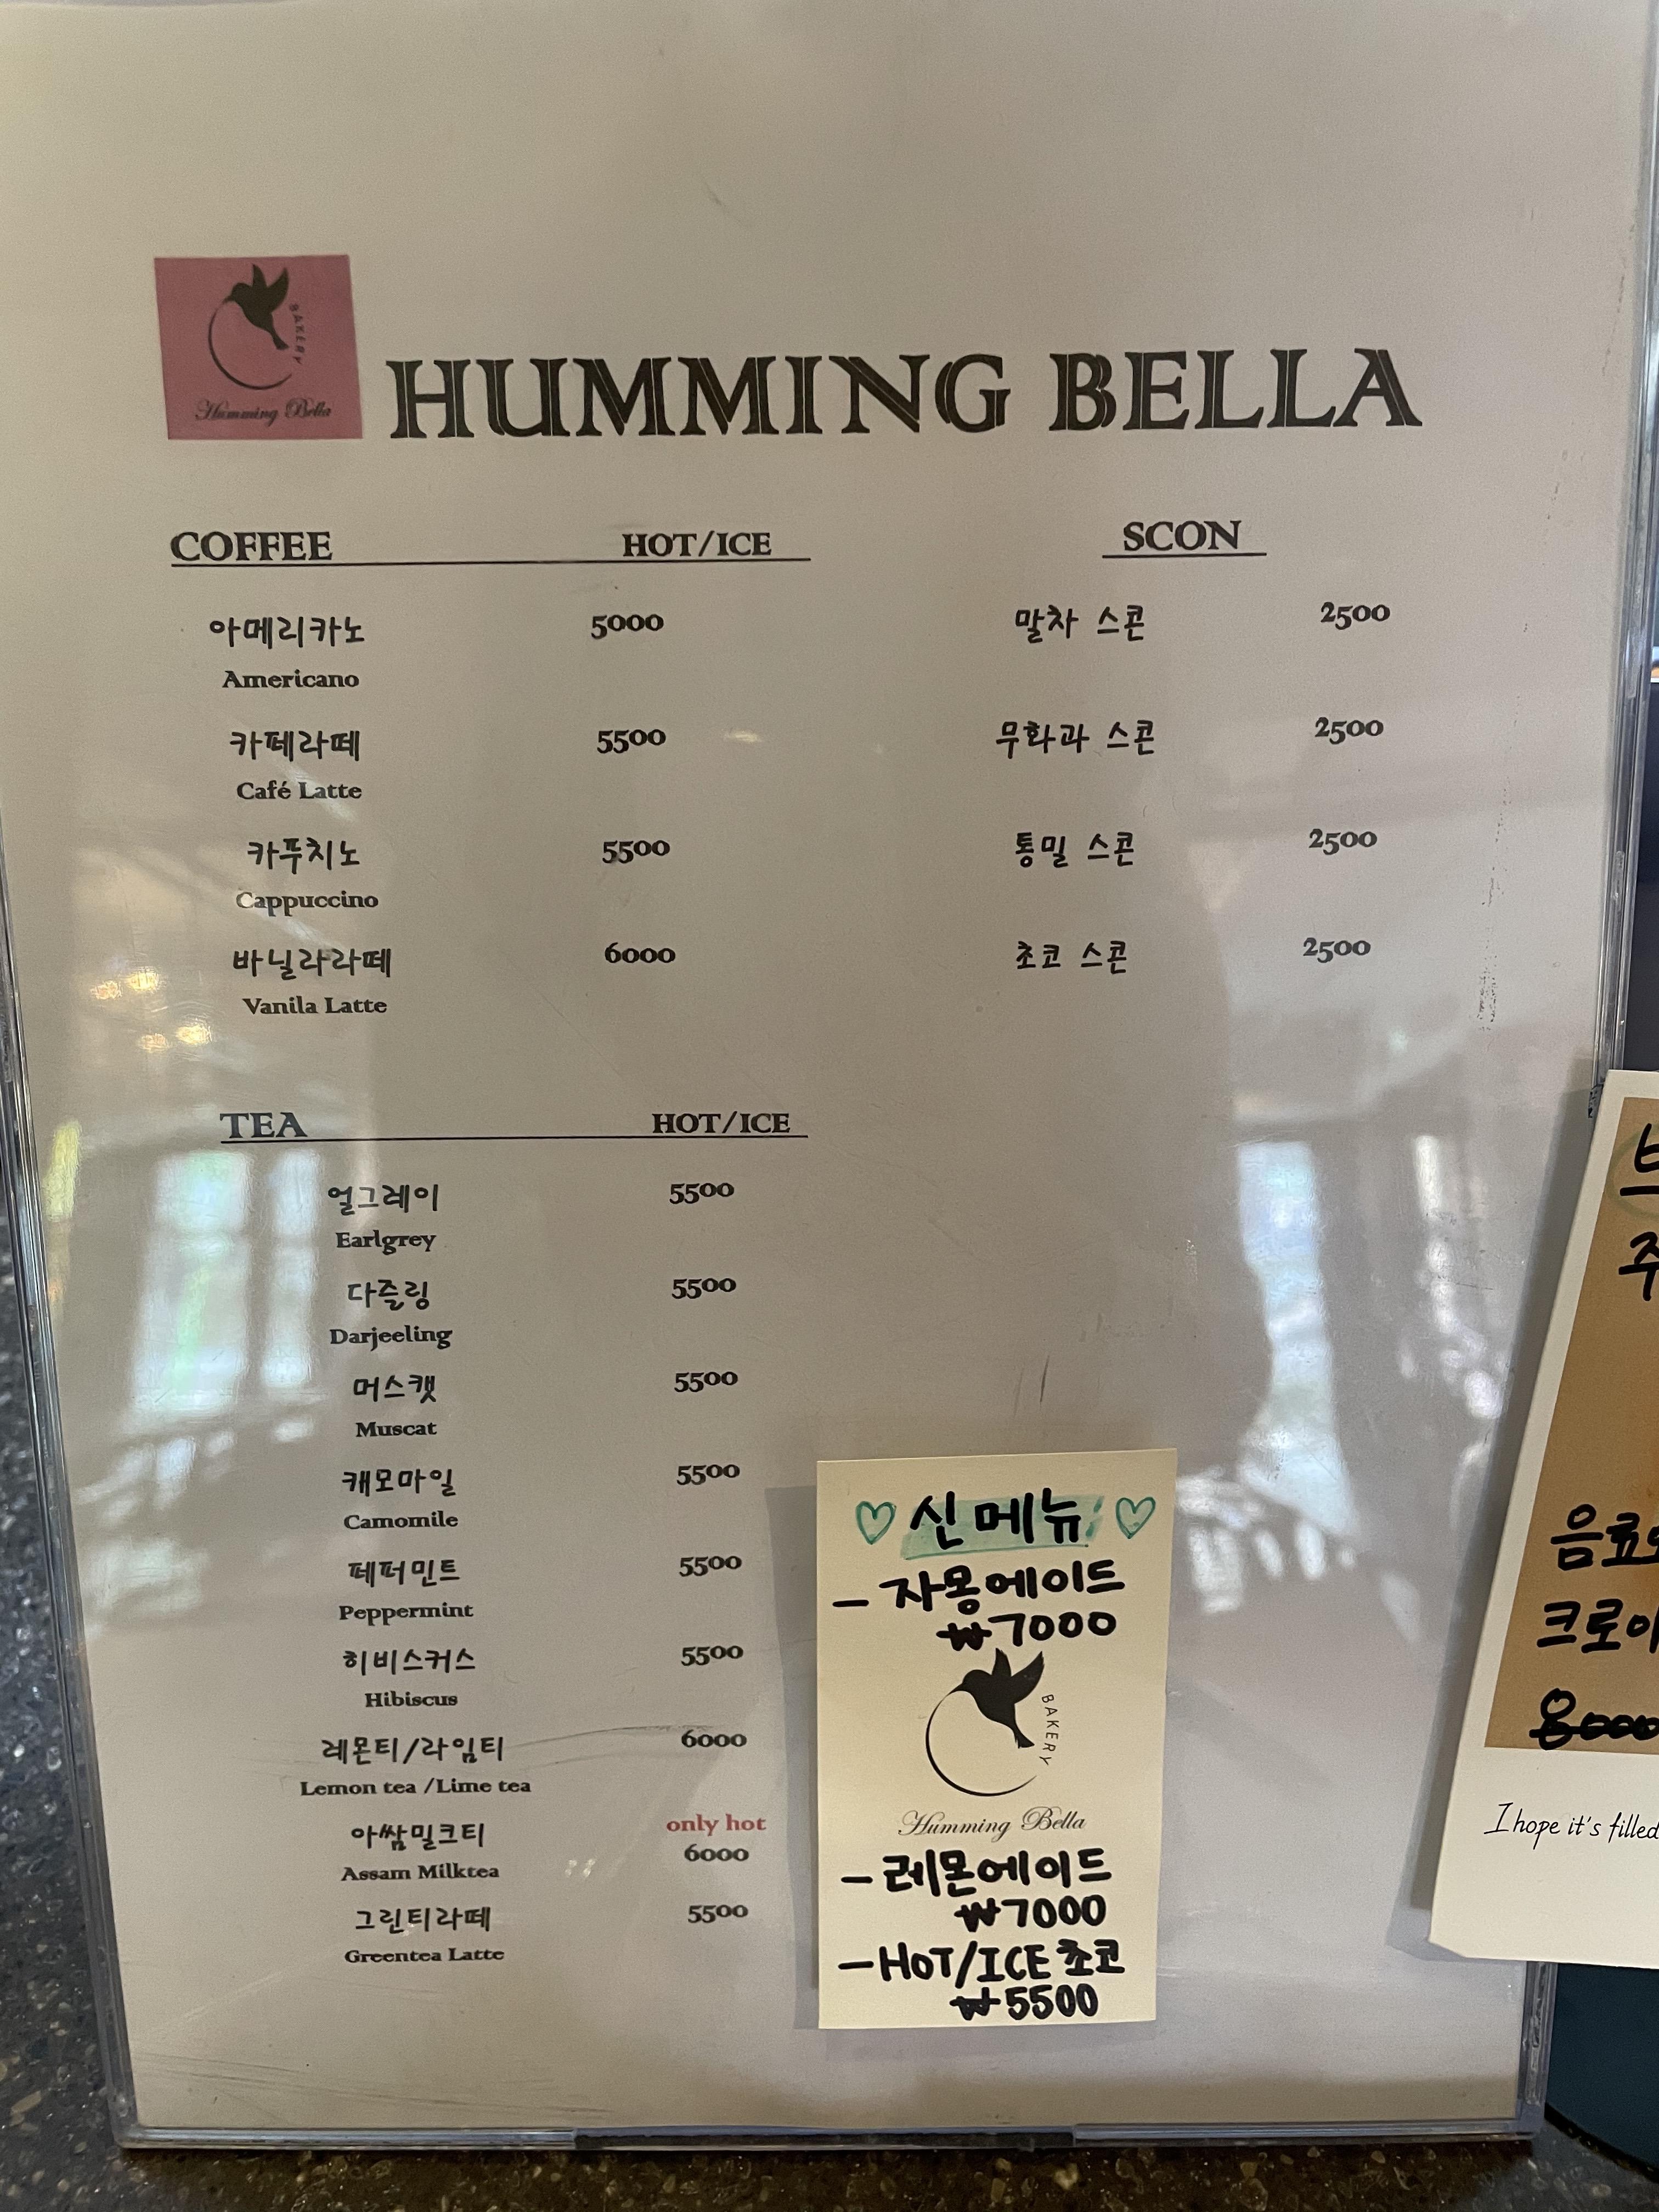 BAKERY
Humming Bella
HUMMING BELLA
COFFEE HOT/ICE
아메리카노 5000
Americano
카페라떼 5500
Café Latte
카푸치노 5500
Cappuccino
바닐라라떼 6000
Vanila Latte
SCON
말차 스콘 2500
무화과 스콘 2500
통밀 스콘 2500
초코 스콘 2500
TEA HOT/ICE
얼그레이 5500
Earlgrey
다즐링 5500
Darjeeling
머스캣 5500
Muscat
캐모마일 5500
Camomile
페퍼민트 5500
Peppermint
히비스커스 5500
Hibiscus
레몬티/라임티 6000
Lemon tea /Lime tea
only hot
아쌈밀크티 6000
Assam Milktea
그린티라떼 5500
Greentea Latte
♡ 신메뉴 ♡
- 자몽에이드
₩7000
BAKERY
Humming Bella
- 레몬에이드
₩7000
- HOT/ICE 초코
₩5500
주
음료
크로아
8000
I hope it's filled